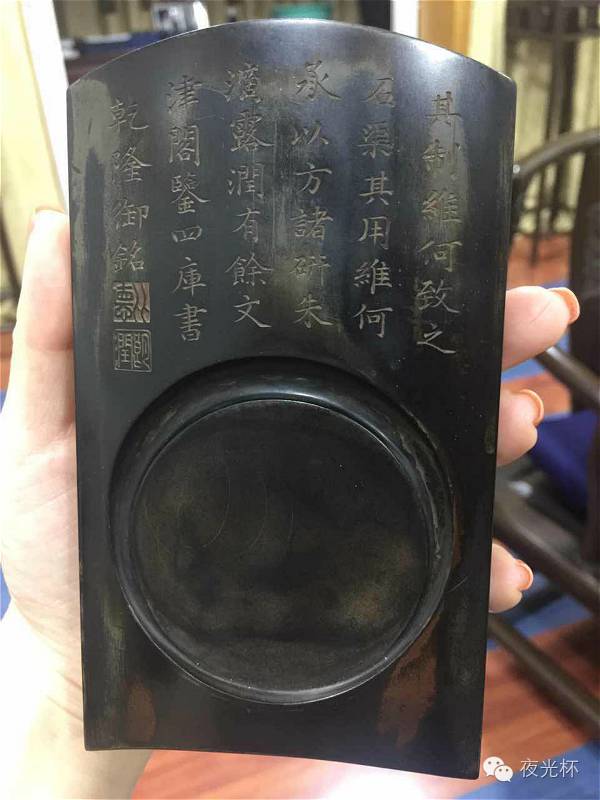 其制維何致之
石渠其用維何
承以方諸研朱
滴露潤有餘文
津閣鑒四庫書
乾隆御銘
夜光杯